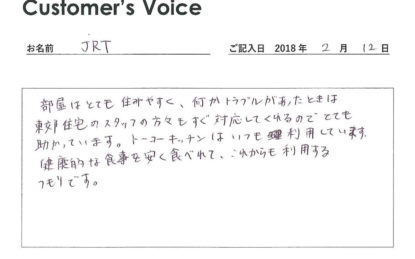 Customer's Voice
お名前 JRT ご記入日 2018 年 2 月 12 日
部屋はとても住みやすく、何かトラブルがあったときは
東郊住宅のスタッフの方々もすぐ対応してくれるのでとても
助かっています。トーコーキッチンはいつも利用しています。
健康的な食事を安く食べれて、これからも利用する
つもりです。